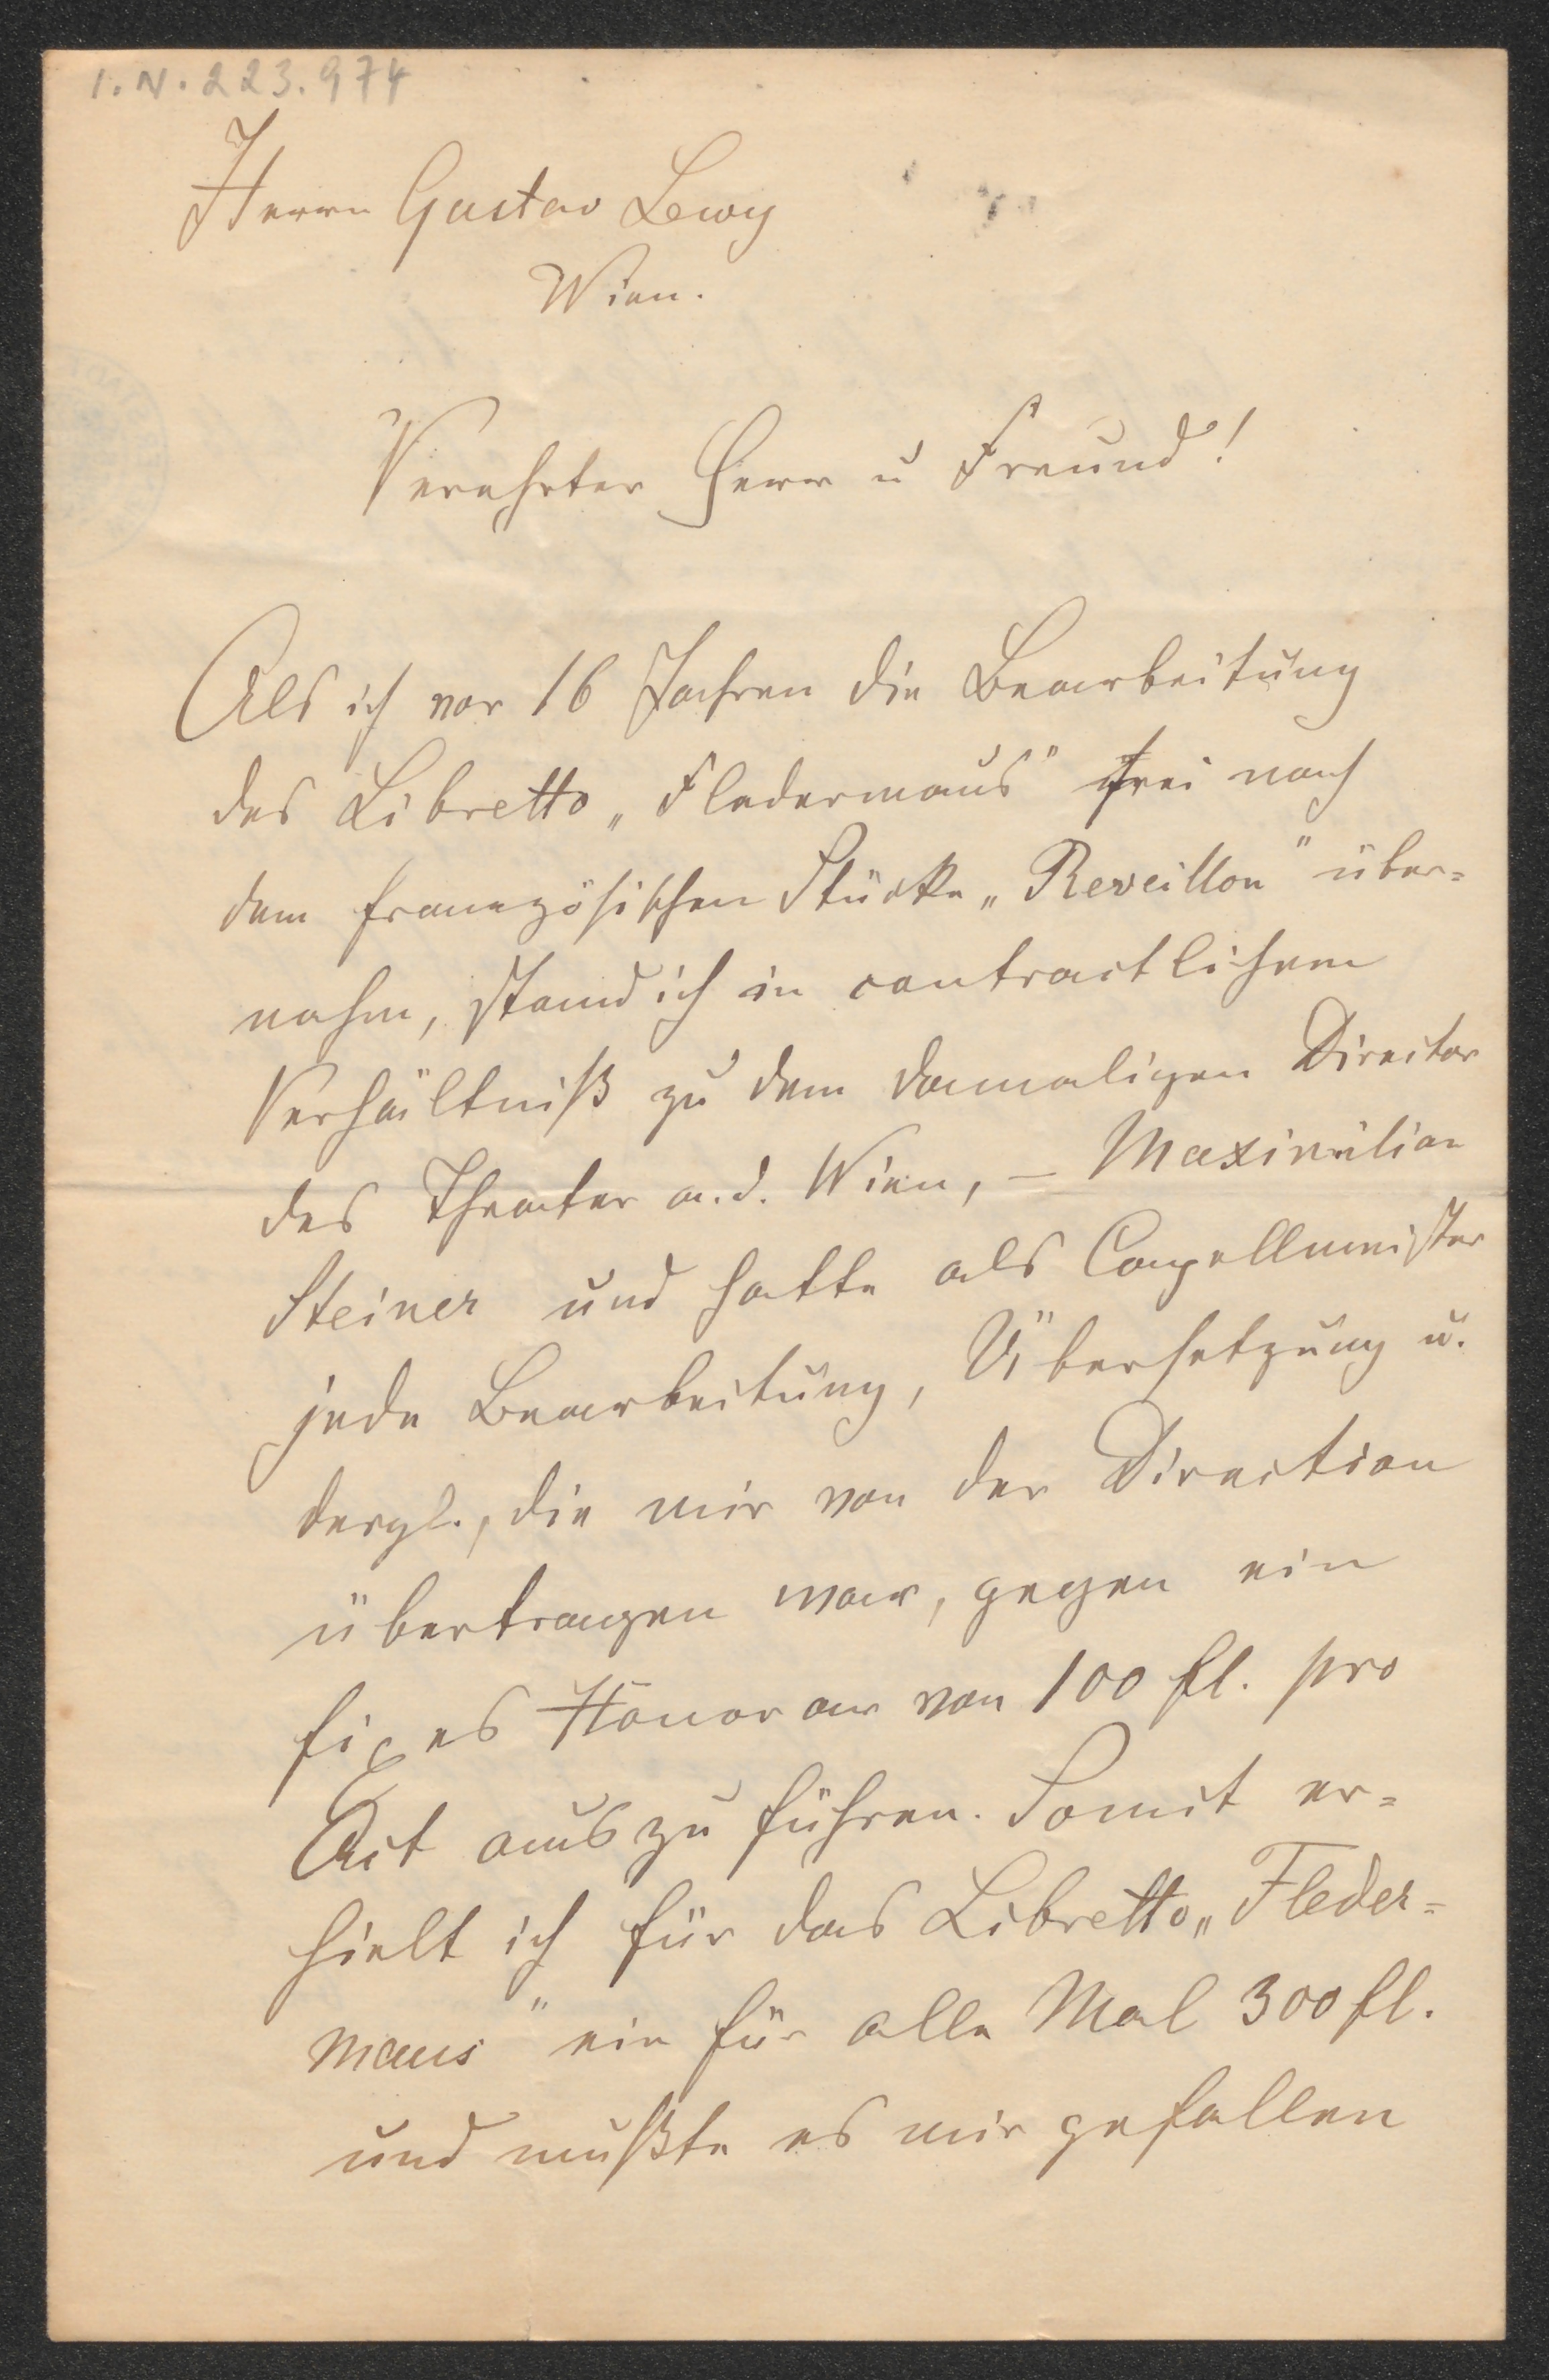 I.N. 223.974
Herrn Gustav Lewy
Wien.
Verehrter Herr u Freund!
Als ich vor 16 Jahren die Bearbeitung
des Libretto „Fledermaus" frei nach
dem französischen Stücke „Reveillon" über=
nahm, stand ich in contractlichem
Verhältniß zu dem damaligen Director
des Theater a. d. Wien, – Maximilian
Steiner und hatte als Capellmeister
jede Bearbeitung, Übersetzung u.
dergl., die mir von der Direction
übertragen war, gegen ein
fixes Honorar von 100 fl. pro
Act auszuführen. Somit er=
hielt ich für das Libretto „Fleder=
maus" ein für alle Mal 300 fl.
und mußte es mir gefallen